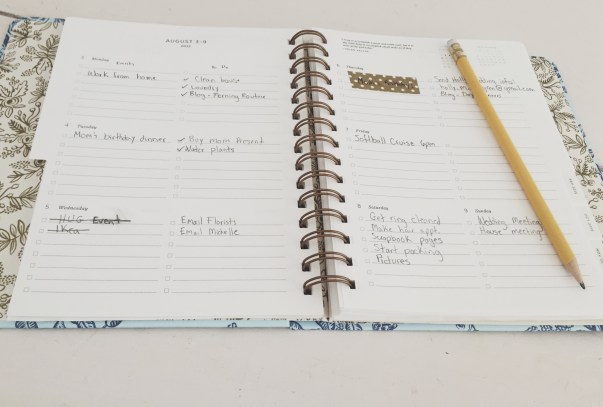 AUGUST 3-9
Monday Events
To Do
Work from home
✓ Clean house
✓ Laundry
✓ Blog - Morning Routine
4 Tuesday
Mom's birthday dinner
✓ Buy mom present
✓ Water plants
5 Wednesday
HUG Event
Ikea
Email Florists
Email Michelle
6 Thursday
Send
Blog -
7 Friday
Softball Cruise 6pm
8 Saturday
Get ring cleaned
Make hair appt.
Scrapbook pages
Start packing
Pictures
9 Sunday
Wedding Meeting
House meeting